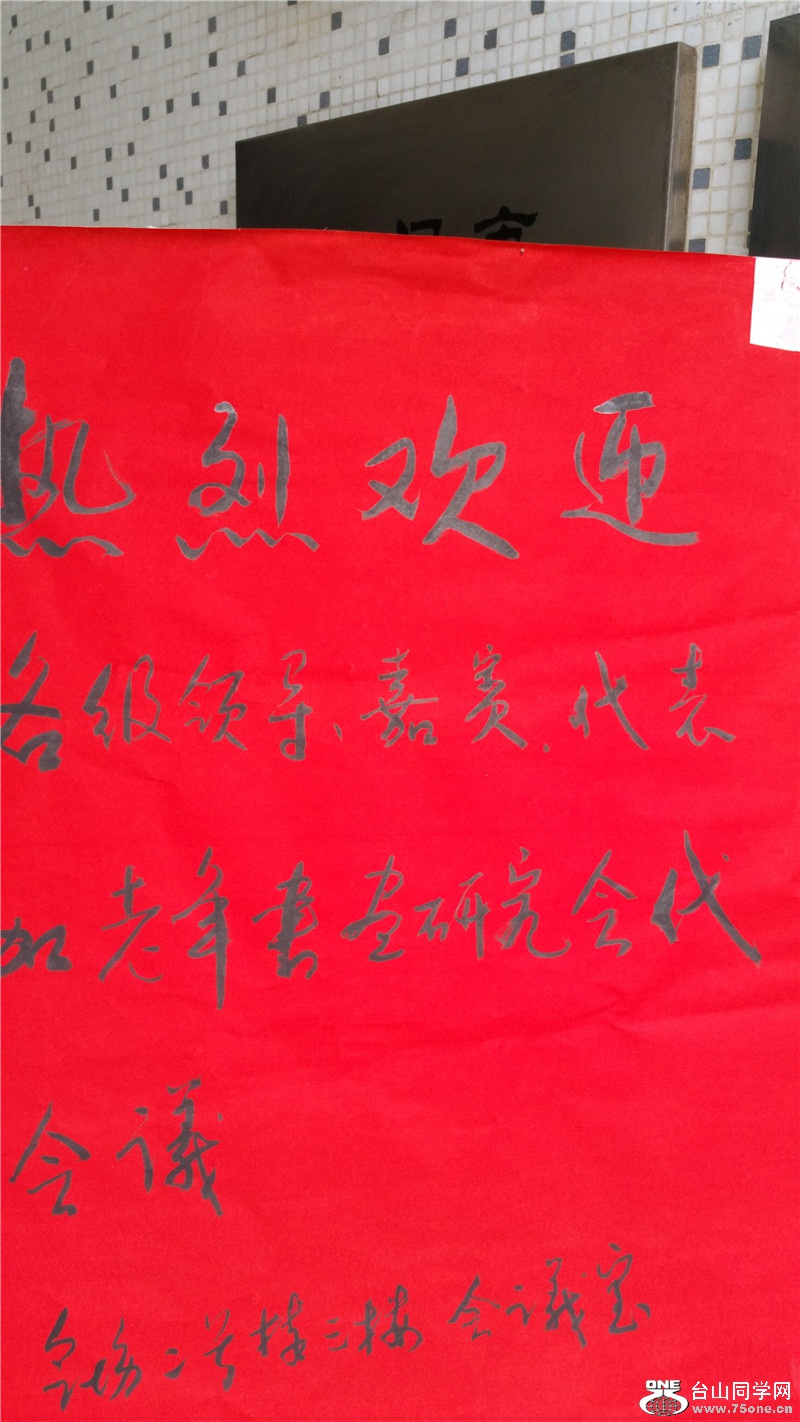 热烈欢迎
各级领导、嘉宾、代表
加老年书画研究会代
会議
二号楼三楼会議室
ONE
台山同学网
www.75one.cn